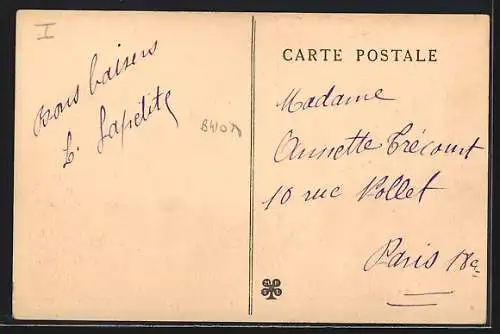 I
Bons baisers
L. Lapetite
CARTE POSTALE
Madame
Annette Trécourt
10 rue Pollet
Paris